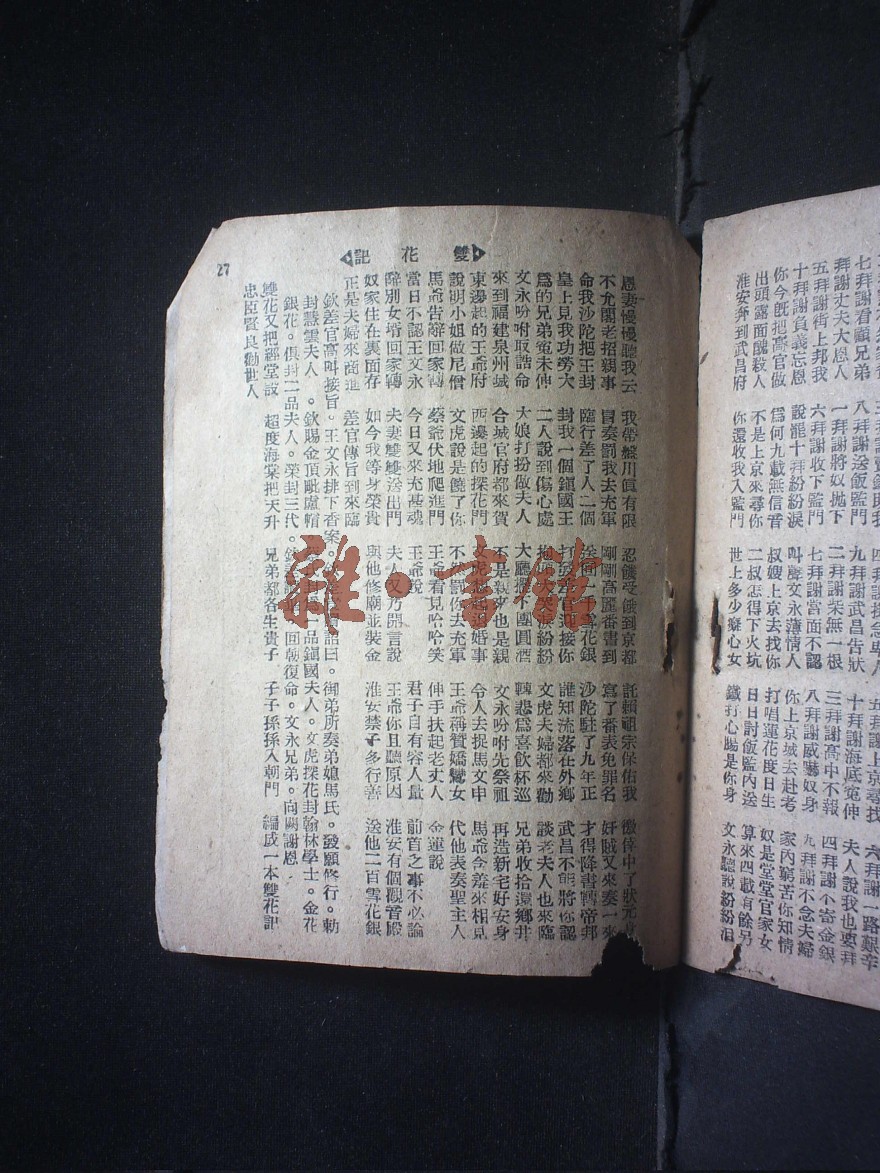 七拜謝看顧兄弟 八拜謝送飯監門 九拜謝武昌告狀 十拜謝海底寃伸 夫人說我也要拜
拜謝丈夫大恩人 一拜謝將奴拋下 二拜謝柴無一根 三拜謝高中不報 四拜謝不寄金銀
五拜謝街上邦我 六拜謝收下監門 七拜謝當面不認 八拜謝威嚇奴身 九拜謝不念夫婦
十拜謝負義忘恩 說罷十拜紛紛淚 叫聲文永薄情人 你上京城去赴考 家內窮苦你知情
你今旣把高官做 爲何九載無信音 叔嫂上京去找你 打唱蓮花度日生 奴是堂堂官家女
出頭露面醜殺人 不是上京來尋你 二叔怎得下火坑 日日討飯監內送 算來四載有餘另
淮安奔到武昌府 你還收我入監門 世上多少癡心女 鐵打心腸是你身 文永聽說紛紛泪
雙花記
27
恩妻慢慢聽我云 我帶盤川眞有限 忍饑受餓到京都 託賴祖宗保佑我 徼倖中了狀元
不允閣老招親事 冒奏罰我去充軍 剛剛高麗番書到 寫了番表免罪名 奸賊又來奏一來
命我沙陀把王封 臨行差了人二個 送 一 雪花銀 沙陀駐了九年正 才得降書轉帝邦
皇上見我功勞大 封我一個鎮國王 打發差官迎接你 誰知流落在外鄉 武昌不能將你認
爲的兄弟寃未伸 二人說到傷心處 抱頭大哭淚紛紛 文虎夫婦都來勸 談老夫人也來臨
文永吩咐取誥命 大娘打扮做夫人 大廳擺下團圓酒 轉悲爲喜飲杯巡 兄弟收拾還鄉井
來到福建泉州城 合城官府都來賀 不是親來也是親 文永吩咐先祭祖 再造新宅好安身
東邊起的王爺府 西邊起的探花門 文虎想起退婚事 令人去捉馬文申 馬爺含羞來相見
說明小姐做尼僧 文虎說是饒了你 不然罰你去充軍 王爺稱贊嬌鸞女 代他表奏聖主人
馬爺告辭回家轉 蔡爺伏地爬進門 王爺看見哈哈笑 伸手扶起老丈人 金蓮說
當日不認王文永 今日又來充甚魂 王爺說 君子自有容人量 前首之事不必論
辭別女壻回家轉 夫妻雙雙送出門 夫人又乃開言說 王爺你且聽原因 淮安有個觀音殿
奴家住在裏面存 如今我等身榮貴 與他修廟並裝金 淮安禁子多行善 送他二百雪花銀
正是夫婦來商進 差官傳旨到來臨
欽差官高叫接旨。王文永排下香案。詔曰。御弟所奏弟媳馬氏。發願修行。勅
封慧雲夫人。欽賜金頂毗盧帽。一品鎮國夫人。文虎探花封翰林學士。金花
銀花。俱封二品夫人。榮封三代。回朝復命。文永兄弟。向闕謝恩。
雙花又把經堂設 超度海棠把天升 兄弟都各生貴子 子子孫孫入朝門 編成一本雙花記
忠臣賢良勸世人
雜·書館